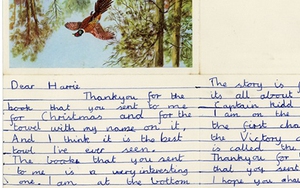 Dear Harrie
Thankyou for the
book that you sent to me
for Christmas and for the
towel with my name on it,
And I think it is the best
towl I've ever seen.
The books that you sent
to me is a very interesting
one, I am at the bottom
The story is
it's all about
Captain Kidd
I am on the
the first cha
the Victory
is called the
Thankyou for
that you sent
I hope you